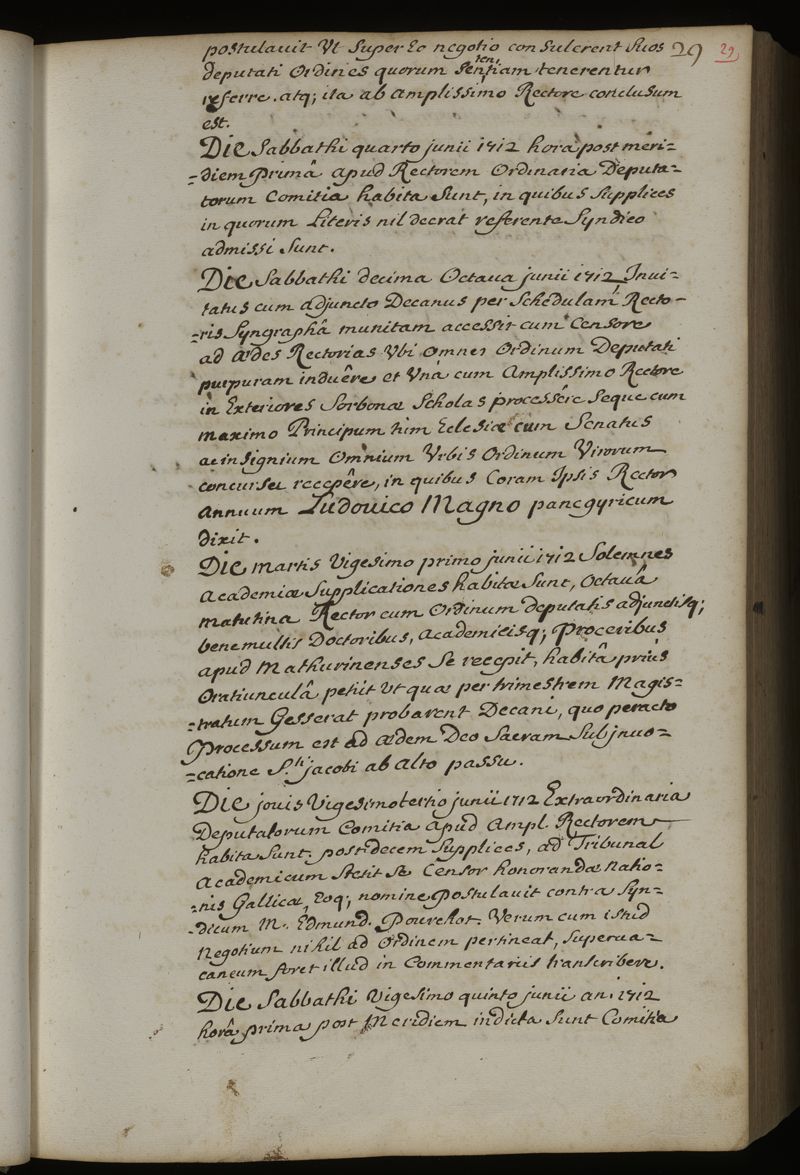 postulavit Vt super Eo negotio consulerent suos 29 29
deputati Ordines quorum sententiam tenerentur
referre. atq; ita ab Amplissimo Rectore conclusum
est.
DIE Sabbathi quarto junii 1712 hora post meri=
=diem primâ apud Rectorem Ordinaria Deputa=
torum Comitia habita sunt, in quibus supplices
in quorum Literis nil deerat referente Syndico
admissi sunt.
DIE Sabbathi decima Octava junii 1712, Invi=
tatus cum adjuncto Decanus per Schedulam Recto=
=ris Syngraphâ munitam accessit cum Censore
ad Ædes Rectorias Vbi omnes Ordinum Deputati
purpuram induêre et Vnà cum Amplissimo Rectore
in Exteriores Sorbonæ Scholas processêre seque cum
maximo Principum tùm Eclesiæ cùm Senatus
ac insignium Omnium Vrbis Ordinum Virorum
concursu recepêre, in quibus Coram Ipsis Rector
Annuum Ludovico Magno panegyricum
dixit.
DIE martis Vigesimo primo junii 1712 Solemnes
Academiæ Supplicationes habitæ sunt, Octavâ
matutina Rector cum Ordinum deputatis adjunctisq;
bene multis Doctoribus, Academicisq; Proceribus
apud Mathurinenses se recepit, habitâ priùs
Oratiunculâ petiit Vt quæ per trimestrem Magis=
=tratum Gesserat probarent Decani, quo peracto
Processum est ad Ædem Deo Sacram Sub jnvo=
=catione S.ti jacobi ab alto passu.
DIE jovis Vigesimotertio junii 1712 Extraordinaria
Deputatorum Comitia apud Ampl. Rectorem
habita sunt. post decem supplices, ad Tribunal
Academicum stetit se Censor honorandæ natio=
=nis Gallicæ, Eoq; nomine postulavit contra Syn=
=dicum M. Edmund. Pourchot. Verum cum istud
Negotium nihil ad Ordinem pertineat, superva=
caneum foret illud in Commentariis transcribere.
DIE Sabbathi Vigesimo quinto junii an. 1712
horâ prima post Meridiem indicta sunt Comitia